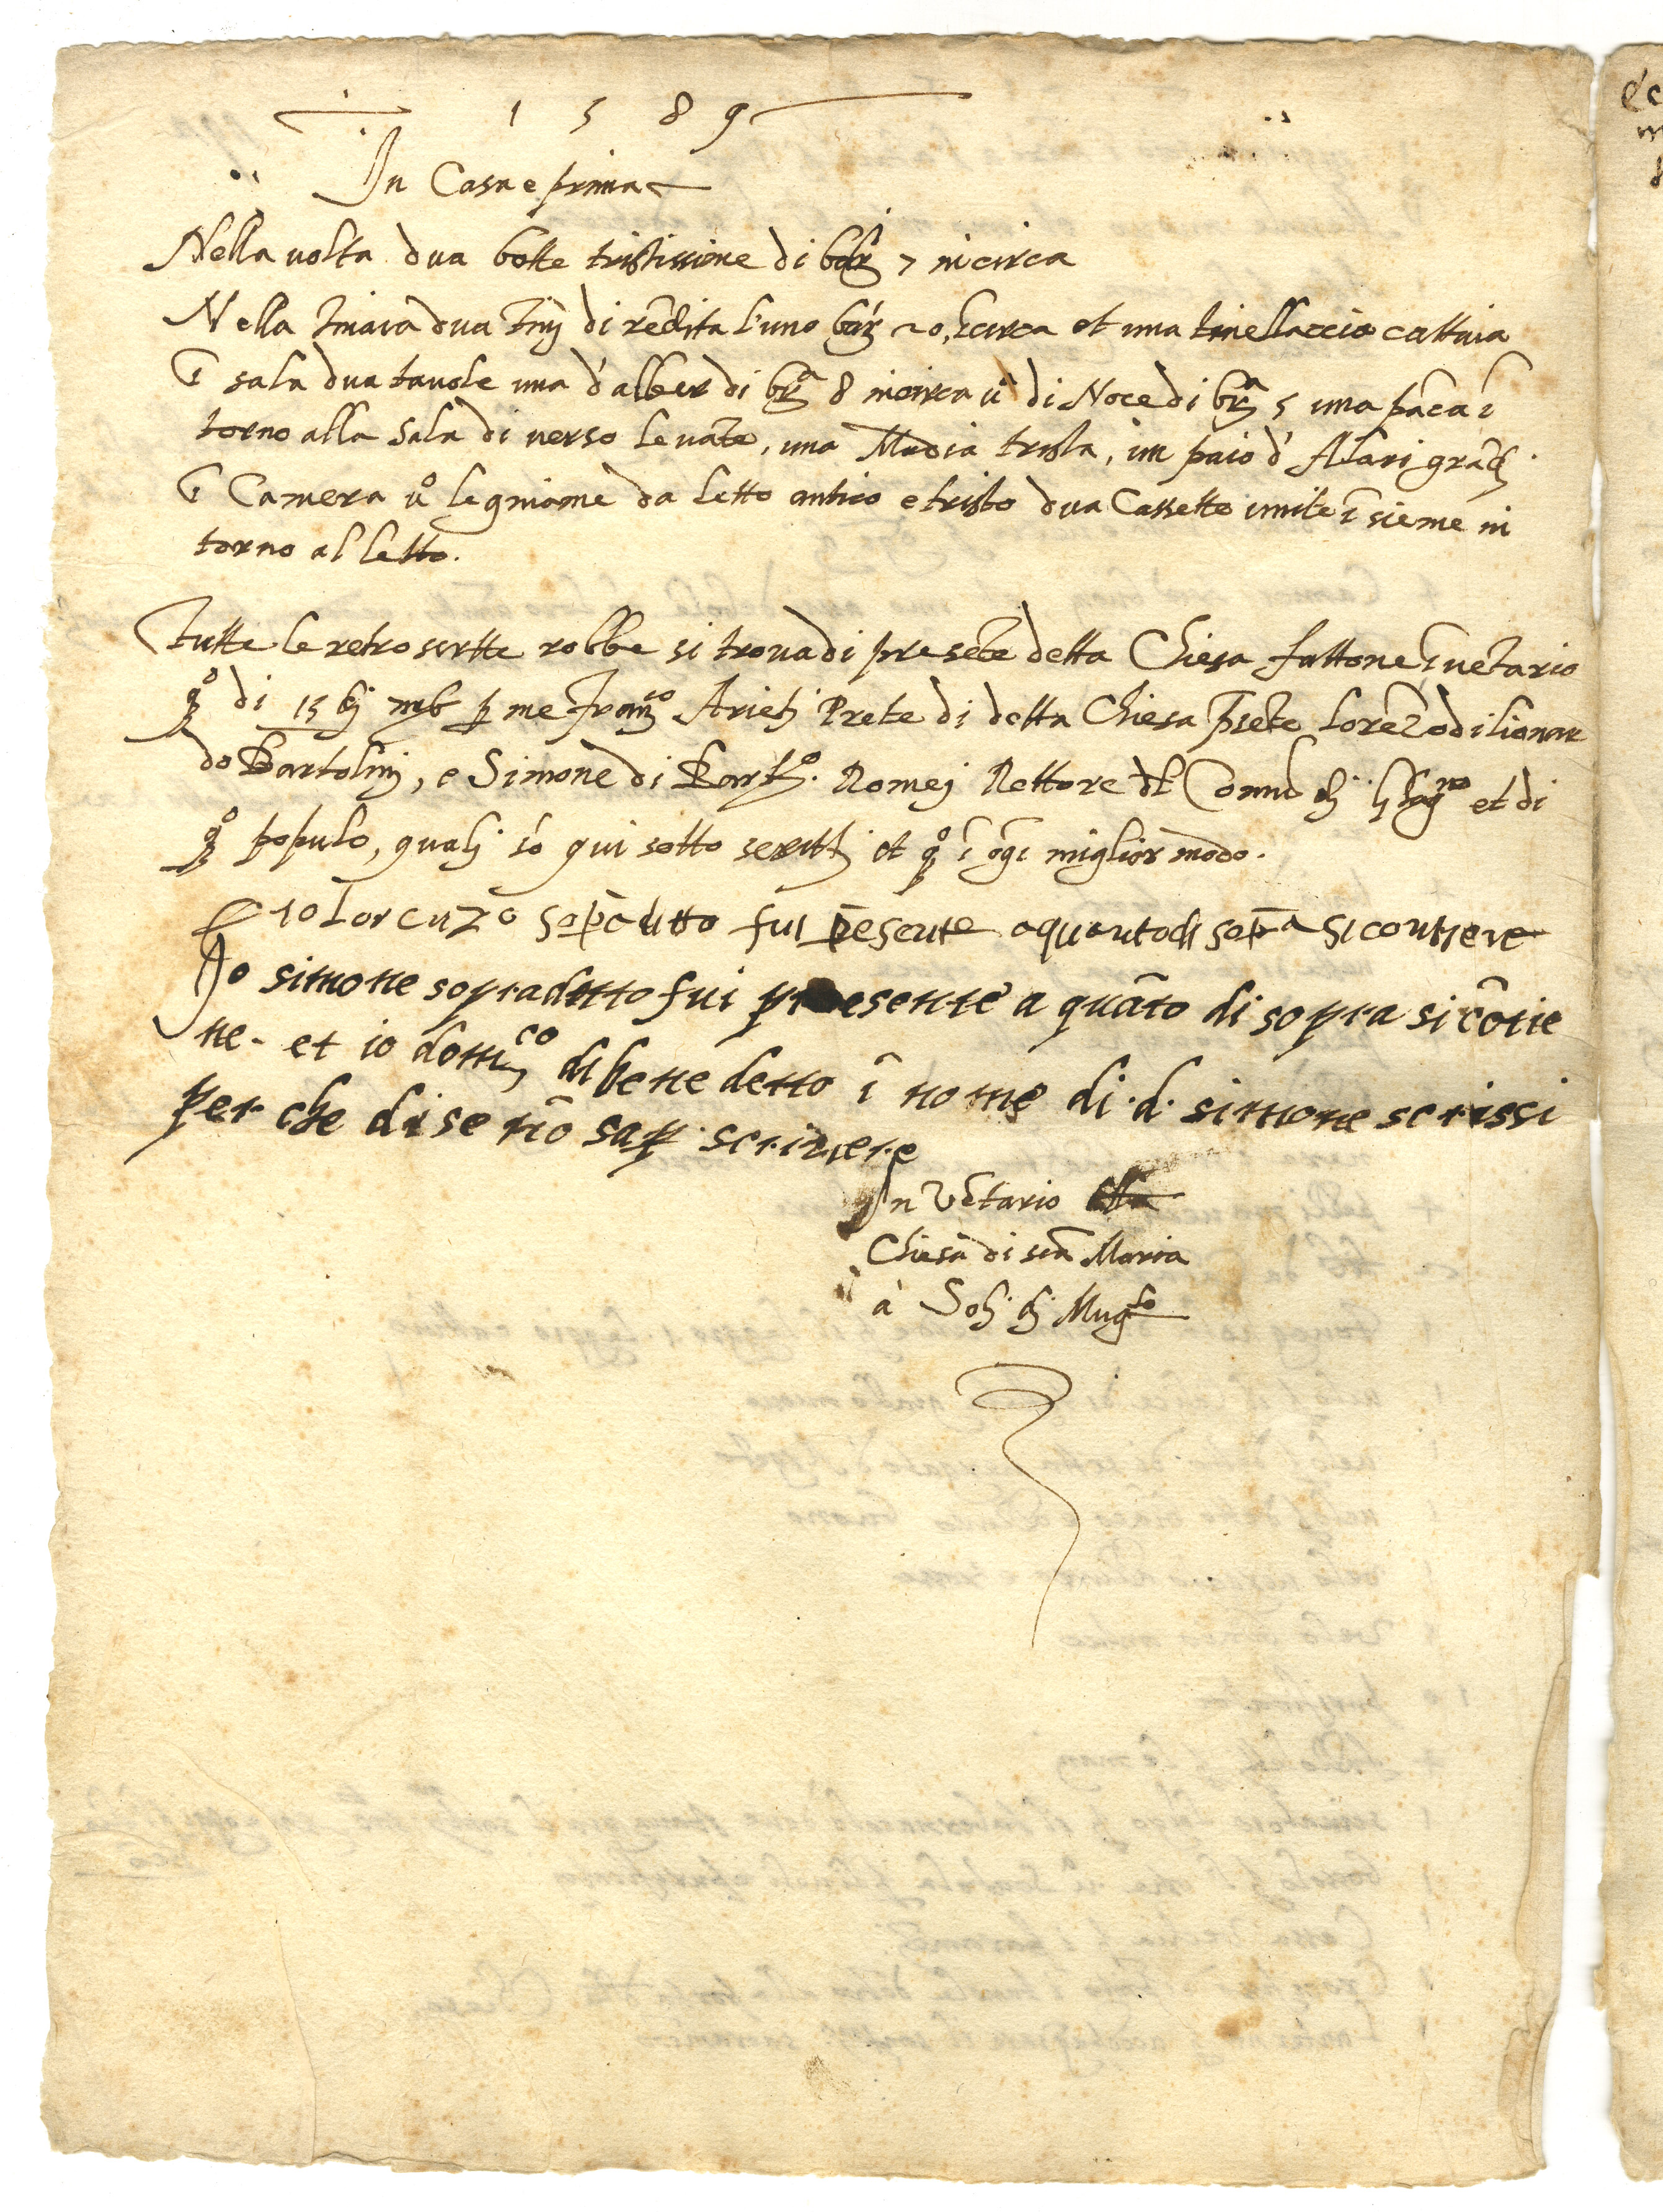 1589
In Casa e prima
Nella uolta dua botte tristissime di bar̃ 7 incirca
Nella tinaia dua tinj di rẽdita l'uno bar̃ 20, ĩcirca et una tinellaccia cattiua
ĩ sala dua tauole una d'alber di br̃a 8 incirca ũ di Noce di br̃a 5 una pãca ĩ
torno alla sala di uerso leuãte, una Madia trista, un paio d'Alari grãdj.
ĩ Camera uº legniame da letto antico e tristo dua Cassette unite ĩsieme in
torno al letto.
Tutte le retroscritte robbe si troua di presẽte detta Chiesa fattone ĩuẽtario
qº di 15 p me Franco Prete di detta Chiesa p̃sẽte Lorẽzo di lionar
do Bartolinj, e Simone di Bartº. Romej Rettore dl Comũ et di
qº populo, qualj sõ qui sotto scrittj et qº ĩ ogĩ miglior modo.
Io Lorenzo sop̃aditto fui p̃esente a quanto di sop̃a si contiene
Io simone sopradetto fui presente a quãto di sopra si cõtie
ne. et io domco di benedetto ĩ nome di .d. simone scrissi
per che disse nõ sap. scriuere
Inuẽtario
Chiesa di sta Maria
à Mugllo